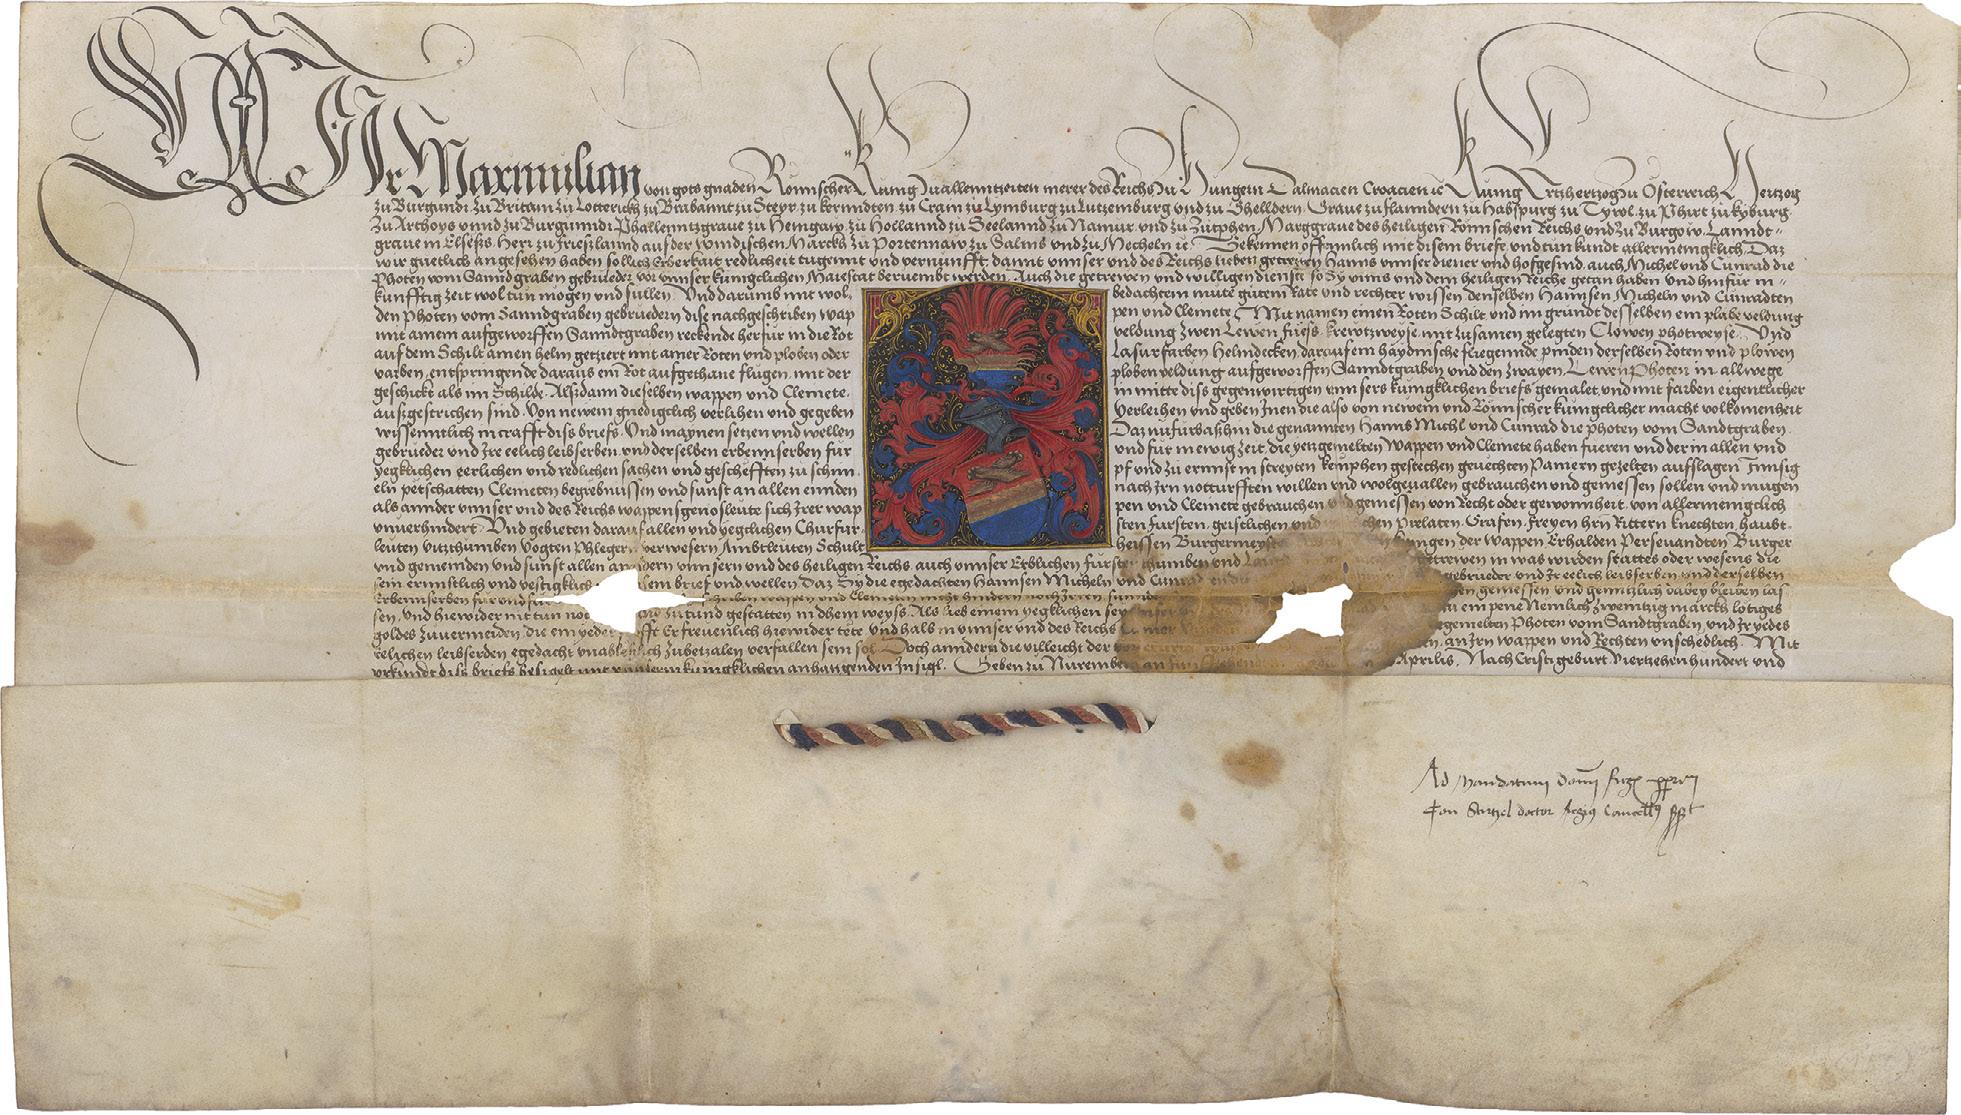 Wir Maximilian von gots gnaden Römischer Kunig zu allenntzeiten merer des Reichs zu Hungern Dalmacien Croacien ic Kunig Ertzhertzog zu Osterreich Hertzog
zu Burgundi zu Brittani zu Lotterickh zu Brabannt zu Steyr zu kernndten zu Crain zu Lymburg zu Lutzemburg vnd zu Ghelldern Graue zu flanndern zu Habspurg zu Tyrol zu Phirt zu kyburg
zu Arthoys vnnd zu Burgunndi Phallenntzgraue zu Henigaw zu Holland zu Seelannd zu Namur vnd zu Zutphen Marggraue des heiligen Römischen Reichs vnd zu Burgow Lanndt=
graue in Elsess Herr zu frieslannd auf der windischen Marckh zu Portennaw zu Salins vnd zu Mecheln ic Bekennen offennlich mit disem briefe vnd tun kundt allermenigklich Daz
wir guetlich angesehen haben sollich Erberkait redlicheit tugennt vnd vernunfft damit vnnser vnd des Reichs lieben getrewen Hanns vnnser diener vnd hofgesind auch Michel vnd Cunrad die
Photen vom Sanndgraben gebrueder vor vnnser kunigclichen Maiestat beruembt werden Auch die getrewen vnd willigen dienste so Sy vnns vnd dem heiligen Reiche getan haben vnd hinfur in=
kunfftig zeit wol tun mogen vnd sullen Vnd darumb mit wol= bedachtem mute gutem Rate vnd rechter wissen denselben Hannsen Micheln vnd Cunradten
den Photen vom Sanndgraben gebruedern dise nachgeschriben wap pen vnd Clemete Mit namen einen Roten Schilt vnd im grundt desselben ein plabe veldung
mit ainem aufgeworffen Sanndtgraben reckende herfur in die Rot veldung zwen Lewen fuess krewtzweyse mit zusamen gelegten Clowen photweyse Vnd
auf dem Schilt ainen helm getziert mit ainer Roten vnd ploben oder Lasurfarben Helmdecken darauf ein haydnische fliegennde pinden derselben Roten vnd plowen
varben entspringende daraus ein Rot aufgethane flugen mit der ploben veldung aufgeworffen Sanndtgraben vnd den zwayen Lewen Photen in allwege
geschickt als im Schilde Alsdann dieselben wappen vnd Clemete in mitte diss gegenwirtigen vnnsers kunigklichen briefs gemalet vnd mit farben eigentlicher
aussgestrichen sind Von newem gnediglich verlihen vnd gegeben Verleihen vnd geben Inen die also von newem vnd Römischer kunigclicher macht volkomenheit
wissenntlich in crafft diss briefs Vnd maynen setzen vnd wellen Daz nu furbasshin die genannten Hanns Michl vnd Cunrad die photen vom Sandtgraben
gebrueder vnd Ire eelich leibserben vnd derselben erbennserben fur vnd fur in ewig zeit die yetzgemelten Wappen vnd Clemete haben fueren vnd der in allen vnd
yegklichen eerlichen vnd redlichen sachen vnd geschefften zu schim pf vnd zu ernnst in streyten kemphen gestechen geuechten Panieren gezelten aufslagen Innsig
eln petschatten Clemeten begrebnussen vnd sunst an allen ennden nach Irn notturfften willen vnd wolgeuallen gebrauchen vnd geniessen sollen vnd mugen
als annder vnnser vnd des Reichs wappensgenosleute sich Irer wap pen vnd Clemete gebrauchen vnd geniessen von Recht oder gewonnheit von allermenigclich
vnuerhindert Vnd gebieten darauf allen vnd yegklichen Churfur= sten fursten geistlichen vnd Prelaten Grafen Freyen hrn Rittern knechten haubt
leuten vitzthumben Vögten Phlegern verwesern Ambtleuten Schult heissen Burgermeystern der Wappen Erhalden Perseuandten Burger
vnd gemeinden vnd sunst allen anndern vnnsern vnd des heiligen Reichs auch vnnser Erblichen furstenthumben vnd getrewen in was wirden stattes oder wesens die
sein ernnstlich vnd vestigklich brief vnd wellen Daz Sy die egedachten Hannsen Micheln vnd Cunrad gebrueder vnd Ir eelich leibserben vnd derselben
Erbennserben fur vnd fur wappen vnd Clemeten nicht hindern noch Irren geniessen vnd genntzlich dabey bleiben las
sen Vnd hiewider nit tun noch zutund gestatten in dhein weyss Als lieb einem yegklichen sey ein pene Nemlich zwenntzig marckh lötiges
goldes zuuermeiden die ein yeder Er freuenlich hiewider tete vnd halb in vnnser vnd des Reichs gemelten Photen vom Sandtgraben vnd Ir yedes
eelichen leibserben egedacht vnableslich zubetzalen verfallen sein sol Doch anndern die villeicht der an Irn wappen vnd Rechten vnschedlich Mit
vrkundt diss briefs besigelt mit vnnserm kunigklichen anhanngenden Insigl Geben zu Nuremberg Aprilis Nach Cristi geburt Viertzehenhundert vnd
Ad Mandatum domi Regis
Con Sturtzel doctor Regius